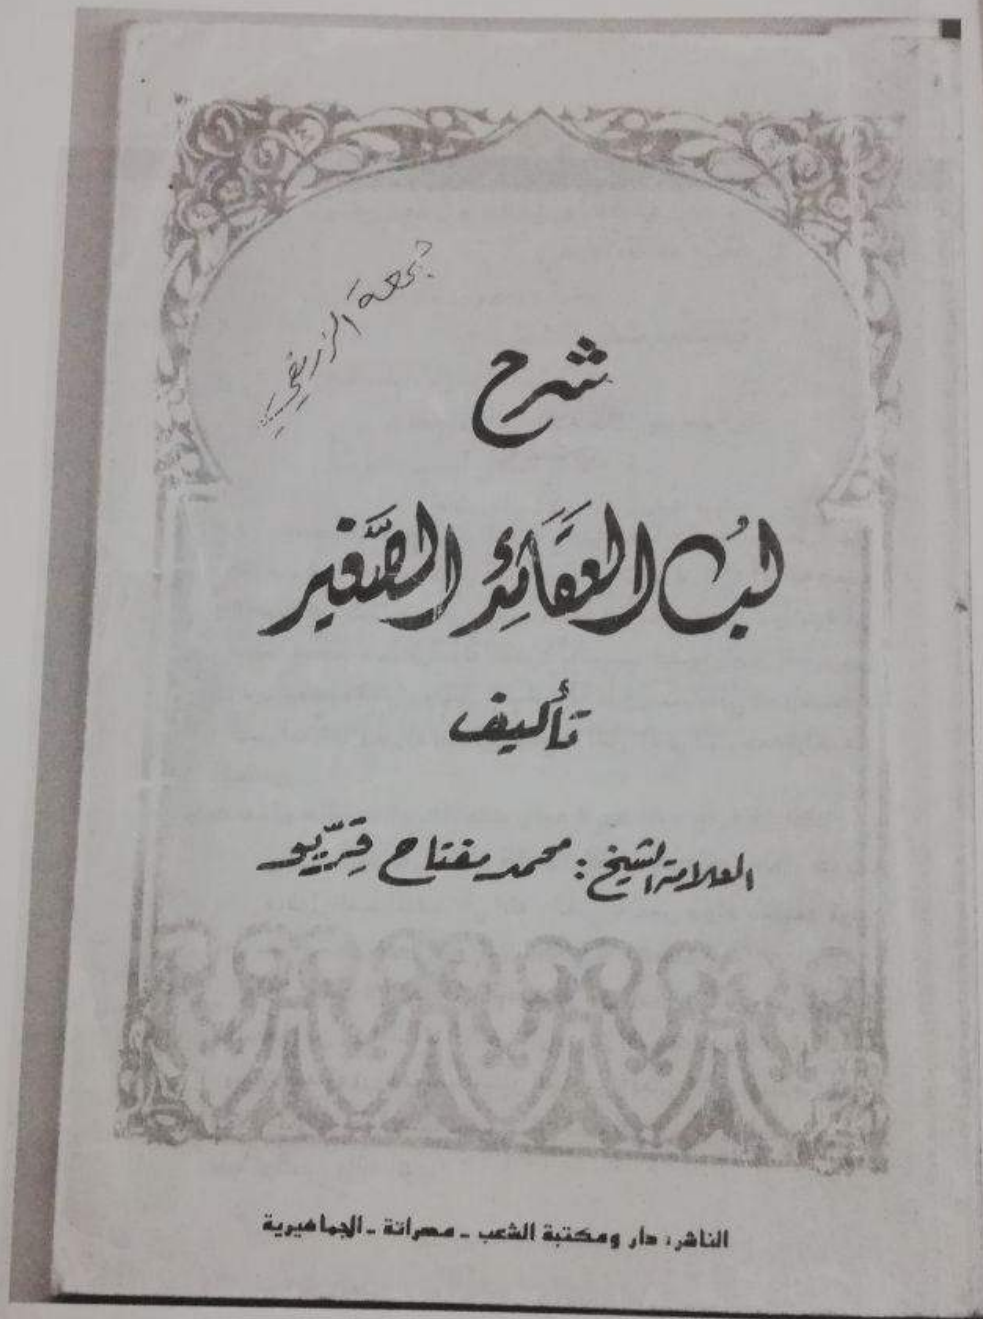 جمعة الزريقي
شرح
لبُ العقَائِد الصَّغير
تأليف
العلامة الشيخ: محمد مفتاح قريّو
الناشر: دار ومكتبة الشعب - مصراتة - الجماهيرية